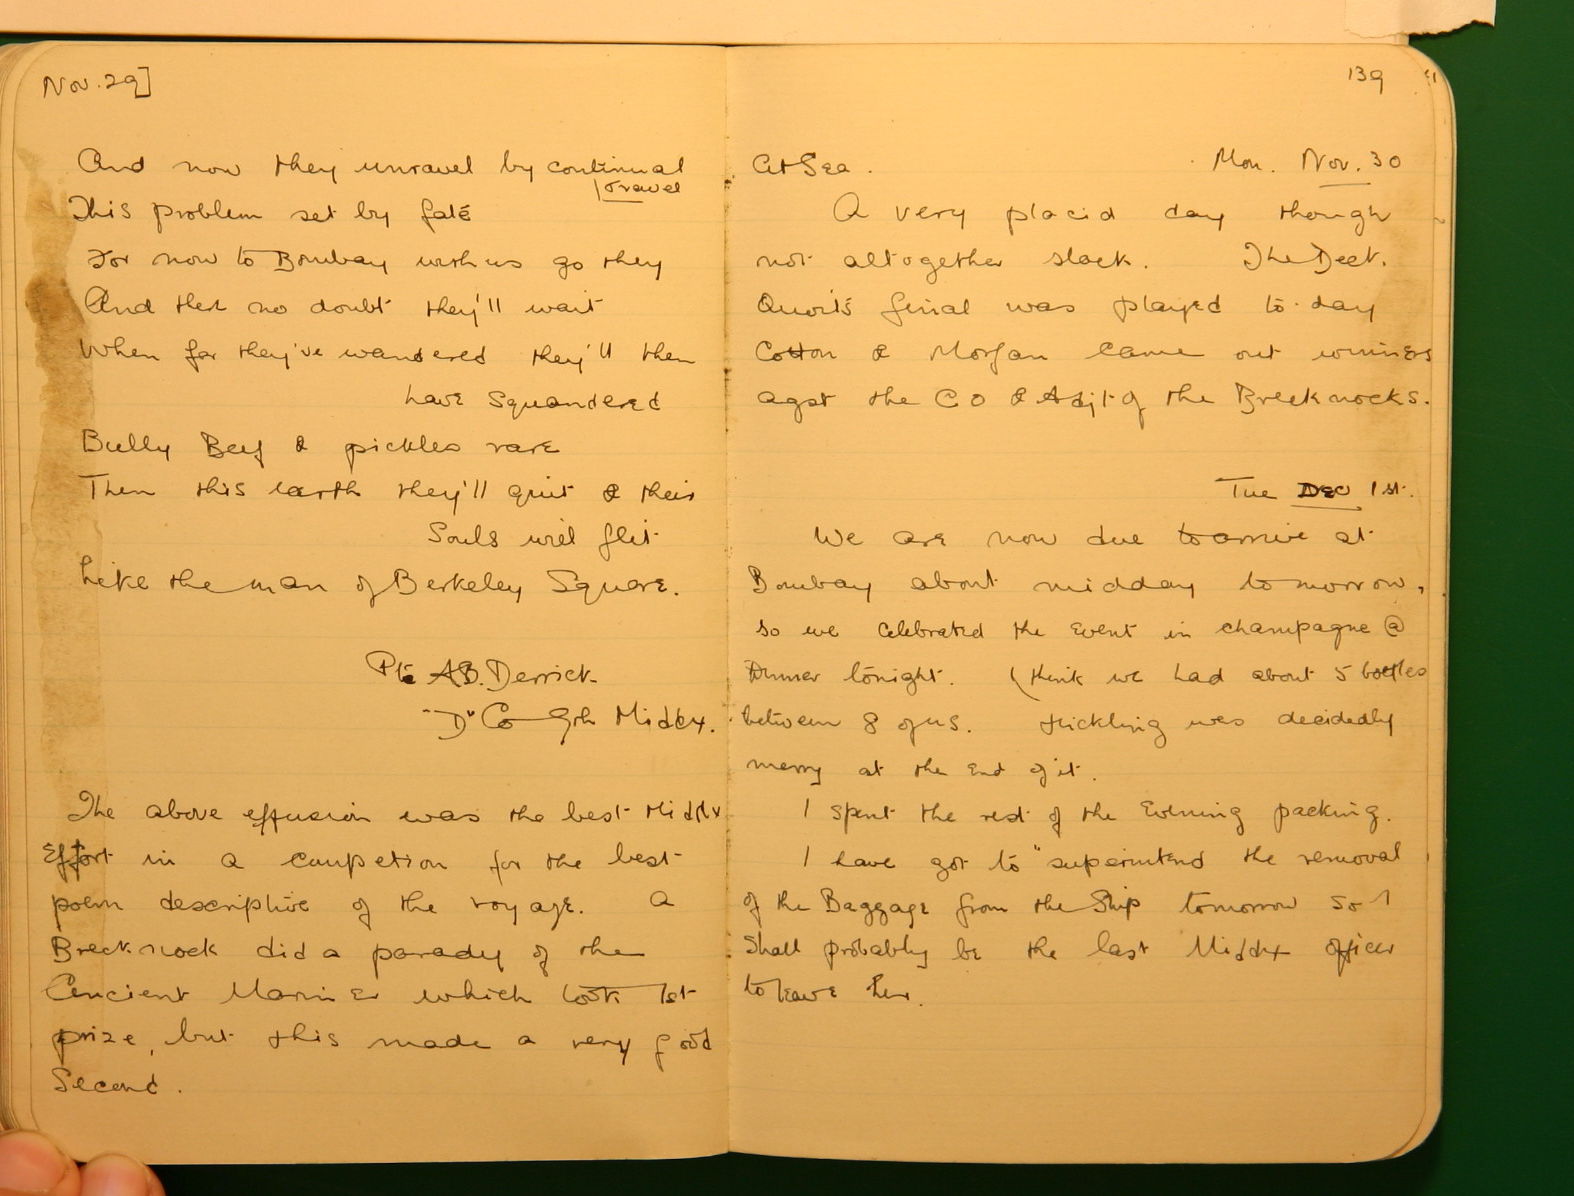 Nov. 29]
And now they unravel by continual
travel
This problem set by fate
For now to Bombay with us go they
And then no doubt they'll wait
When far they've wandered they'll then
have squandered
Bully Beef & pickles rare
Then this earth they'll quit & their
Souls will flit
Like the man of Berkeley Square.
Pte AB. Derrick
"D" Co 9th Middx.
The above effusion was the best Middx
Effort in a coupetion for the best
poem descriptive of the voyage. A
Brecknock did a parady of the
Ancient Mariner which took 1st
prize, but this made a very good
Second.
139
At Sea. Mon. Nov. 30
A very placid day though
not altogether slack. The Deck.
Quoits final was played to-day
Cotton & Morgan came out winners
agst the CO & Adjt of the Brecknocks.
Tue Dec 1st.
We are now due to arrive at
Bombay about midday tomorrow,
so we celebrated the Event in champagne @
Dinner tonight. I think we had about 5 bottles
between 8 of us. Hickling was decidedly
merry at the End of it.
I spent the rest of the Evening packing.
I have got to "superintend the removal
of the Baggage from the Ship tomorrow so I
shall probably be the last Middx officer
to leave her.